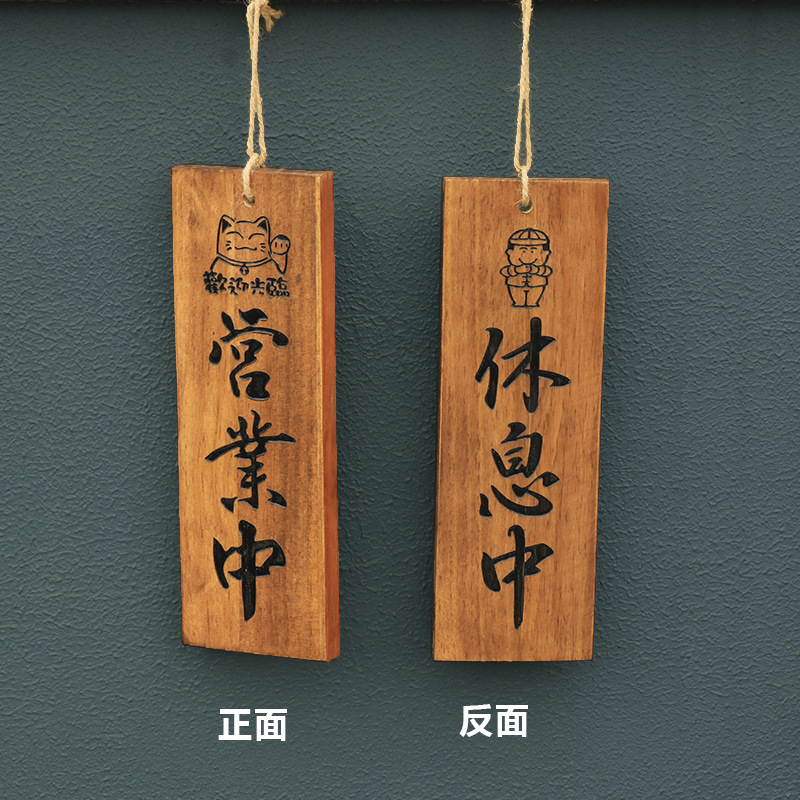 歡迎光臨
営業中
正面
休息中
反面